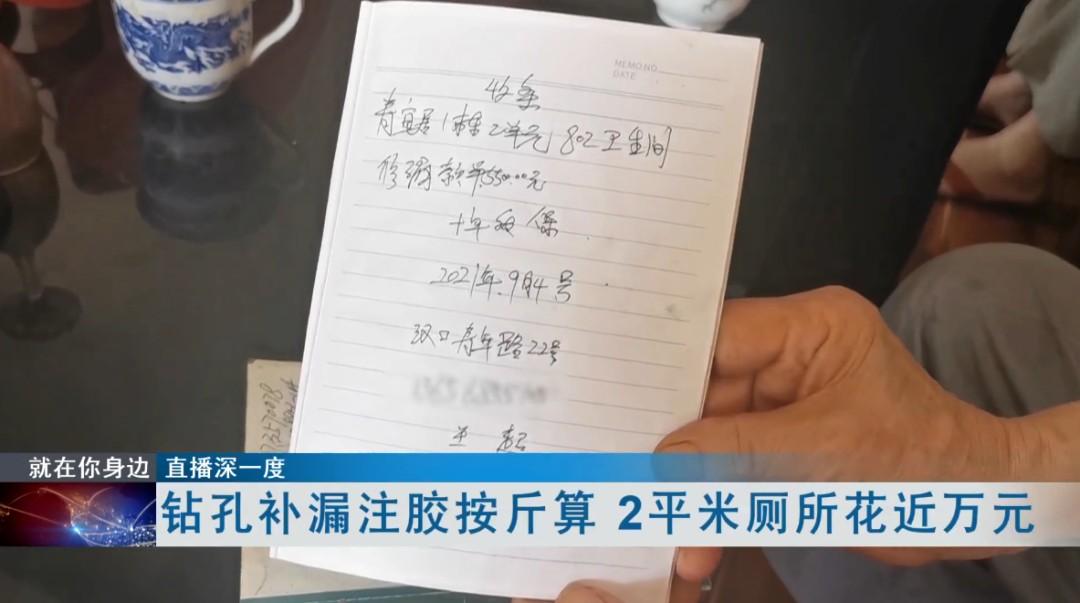 MEMO.NO.
DATE
收条
青宜居1栋2单元802卫生间
修缮款¥:5500.00元
十年质保
2021年.9月4号
汉口青年路22号
就在你身边 直播深一度
钻孔补漏注胶按斤算 2平米厕所花近万元